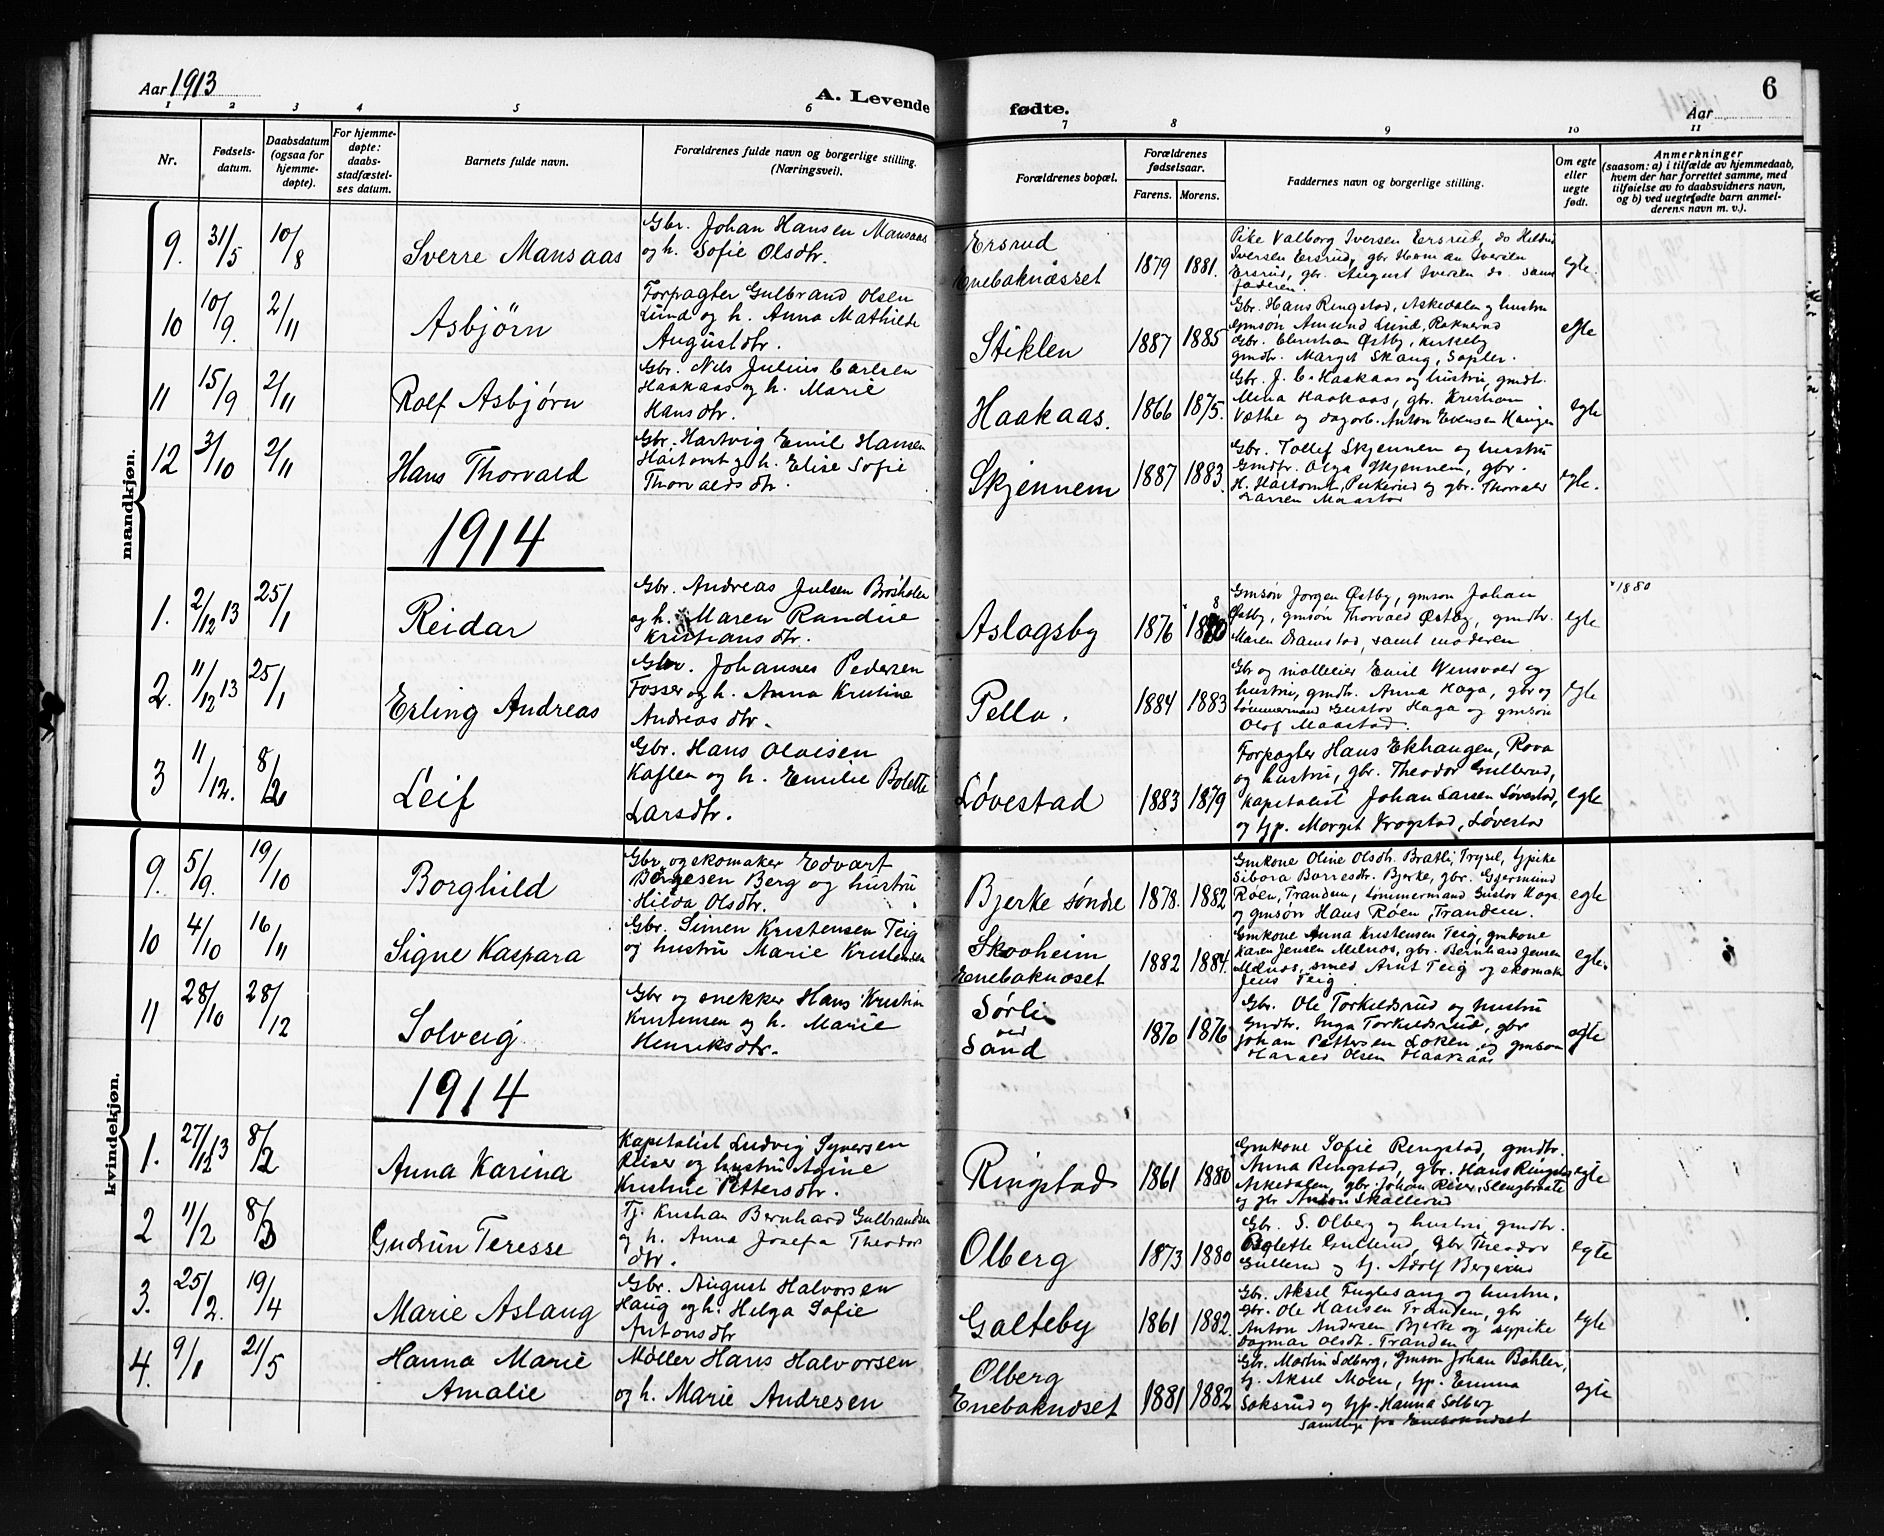 Aar 1913
A. Levende
fødte.
6
Aar
1 2 3 4 5 6 7 8 9 10 11
Nr.
Fødsels-
datum.
Daabsdatum
(ogsaa for
hjemme-
døpte).
For hjemme-
døpte:
daabs-
stadfæstel-
ses datum.
Barnets fulde navn.
Forældrenes fulde navn og borgerlige stilling.
(Næringsvei).
Forældrenes bopæl.
Forældrenes
fødselsaar.
Farens. Morens.
Faddernes navn og borgerlige stilling.
Om egte
eller
uegte
født.
Anmerkninger
(saasom: a) i tilfælde av hjemmedaab,
hvem der har forrettet samme, med
tilføielse av to daabsvidners navn,
og b) ved uegtefødte barn anmel-
derens navn m. v.).
mandkjøn.
9. 31/5 10/8 Sverre Mansaas
Gbr. Johan Hansen Mansaas
og h. Sofie Olsdtr.
Ersrud
Enebaknæsset
1879 1881.
Pike Valborg Iversen Ersrud, do Hilda
Iversen Ersrud, gbr Herman Iversen
Ersrud, gbr. August Iversen do. samt
faderen.
egte.
10 10/9. 2/11 Asbjörn
Forpagter Gulbrand Olsen
Lund og h. Anna Mathilde
Augustdtr.
Stiklen
1887 1885
Gbr. Hans Ringstad, Askedalen og hustru
Gmsøn Amund Lund, Raknerud
Gbr. Christian Østby, Kirkeby
gmdtr. Margit Skaug, Sopler.
egte
11 15/9 2/11 Rolf Asbjørn
Gbr. Nils Julius Carlsen
Haakaas og h. Marie
Hansdtr.
Haakaas.
1866 1875.
Gbr. J. C. Haakaas og hustru, gmdt.
Mina Haakaas, gbr. Kristian
Væthe og dagarb. Anton Evensen Haugen
egte
12 3/10 2/11 Hans Thorvald
Gbr. Hartvig Emil Hansen
Haitomt og h. Elise Sofie
Thorvaldsdtr.
Skjennem
1887 1883.
Gbr. Tollef Skjennem og hustru
Gmdtr. Olga Skjennem, gbr.
H. Haitomt, Pikerud og gbr. Thorvald
Larsen Maastad
egte.
1914
1. 2/12 13 25/1 Reidar
Gbr. Andreas Julsen Brøsholen
og h. Maren Randine
Kristiansdtr.
Aslagsby
1876 1880
Gmsøn Jorgen Østby, gmsøn Johan
Østby, gmsøn Thorvald Østby, gmdtr.
Maren Ramstad, samt moderen
egte
* 1880
2. 11/12 13 25/1 Erling Andreas
Gbr. Johannes Pedersen
Fosser og h. Anna Kristine
Andreasdtr.
Pella.
1884 1883
Gbr og mølleeier Emil Vensvold og
hustru, gmdtr. Anna Haga, gbr og
tømmermand Gustav Haga og gmsøn
Olof Maastad.
egte
3 11/12. 8/2 Leif
Gbr. Hans Olaisen
Kaflen og h. Emilie Bolette
Larsdtr.
Løvestad
1883 1879
Forpagter Hans Ekhaugen, Rova
og hustru, gbr. Theodor Gullerud,
Kapitalist Johan Larsen Løvestad,
og typ. Margit Krogstad, Løvestad
egte
kvindekjøn.
9. 5/9. 19/10 Borghild
Gbr og skomaker Edvart
Børgesen Berg og hustru
Hilda Olsdtr.
Bjerke søndre
1878. 1882
Gmkone Oline Olsdtr. Bratli, Trysil, typike
Sibora Borresdtr. Bjerke, gbr. Gjermund
Røen, Tranden, tømmermand Gustav Haga
og gmsøn Hans Røen, Tranden.
egte
10 4/10 16/11 Signe Kaspara
Gbr. Simen Kristensen Teig
og hustru Marie Kristensen
Skovheim
Enebaknæset
1882 1884.
Gmkone Anna Kristensen Teig, gmkone
Karen Jensen Melnæs, gbr. Bernhard Jensen
Melnæs, smed Arnt Teig og skomaker
Jens Teig
egte.
11 28/10 28/12 Solveig
Gbr og snekker Hans Kristian
Kristensen og h. Marie
Henriksdtr.
Sørli
ved
Sand
1870 1876
Gbr. Ole Torkildsrud og hustru
Gmdtr. Inga Torkildsrud, gbr
Johan Pettersen Løken og gmsøn
Harald Olsen Haakaas
egte
1914
1. 27/12 13 8/2 Anna Karina
Kapitalist Ludvig Syversen
Reier og hustru Agine
Kristine Pettersdtr.
Ringstad
1861 1880
Gmkone Sofie Ringstad, gmdtr.
Anna Ringstad, gbr. Hans Ringstad
Askedalen, gbr. Johan Reier, Slengbraate
og gbr Anton Skallerud
egte
2 11/2 8/3 Gudrun Teresse
Tj. Kristian Bernhard Gulbrandsen
og h. Anna Josefa Theodor
dtr.
Olberg
1873 1880
Gbr. S. Olberg og hustru gmdtr.
Bolette Gullerud, Gbr Theodor
Gullerud og tj. Adolf Bergerud
egte
3. 25/2. 19/4 Marie Aslaug
Gbr. August Halvorsen
Haug og h. Helga Sofie
Antonsdtr
Galteby
1861 1882.
Gbr. Aksel Fuglesang og hustru,
Gbr. Ole Hansen Tranden, gbr
Anton Andersen Bjerke og sypike
Dagmar Olsdtr. Tranden
egte
4. 9/1 21/5 Hanna Marie
Amalie
Møller Hans Halvorsen
og h. Marie Andresen
Olberg
Enebaknæset
1881 1882
Gbr. Martin Solberg, Gmsøn Johan Bøhler,
tj. Aksel Moen, typ. Emma
Saksrud og typ. Hanna Solberg
samtlige fra Enebaknæset
egte